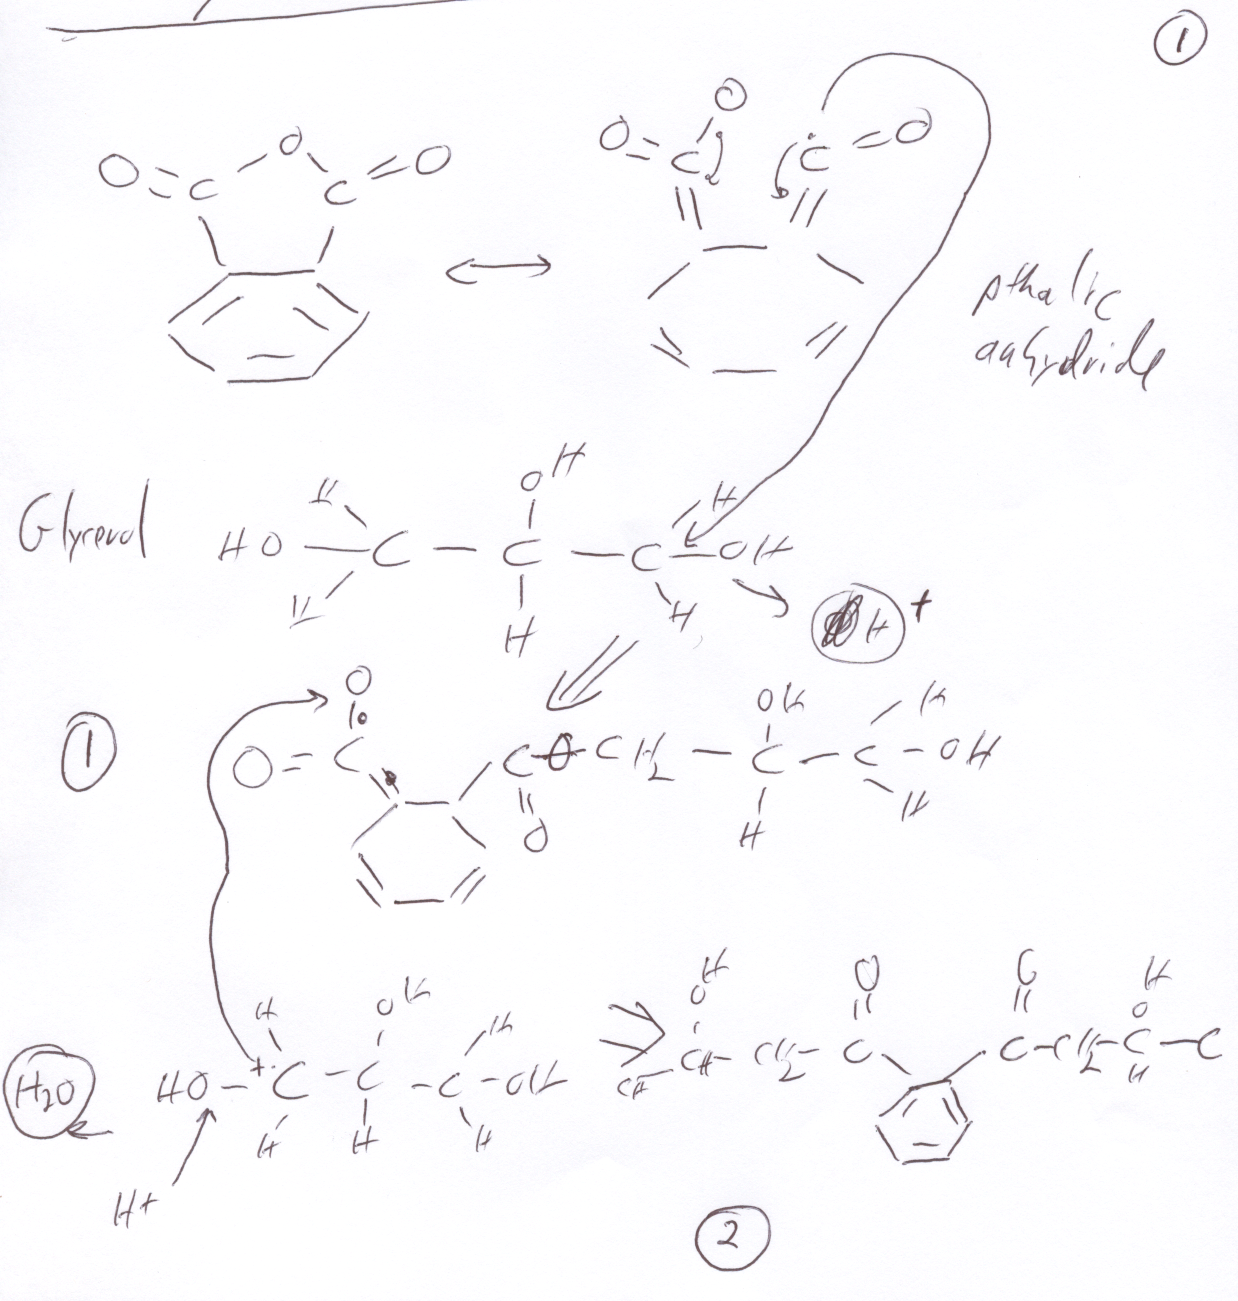 ①
O=C O C=O
O=C O C=O
pthalic
anhydride
Glycerol
H OH H
HO C C C OH
H H H
H+
①
O OH H
O=C C O CH2 C C OH
O H H
H OH H
H2O HO + C C C OH
H H H
H+
OH O O OH
CH CH CH2 C C CH2 C C
H
②